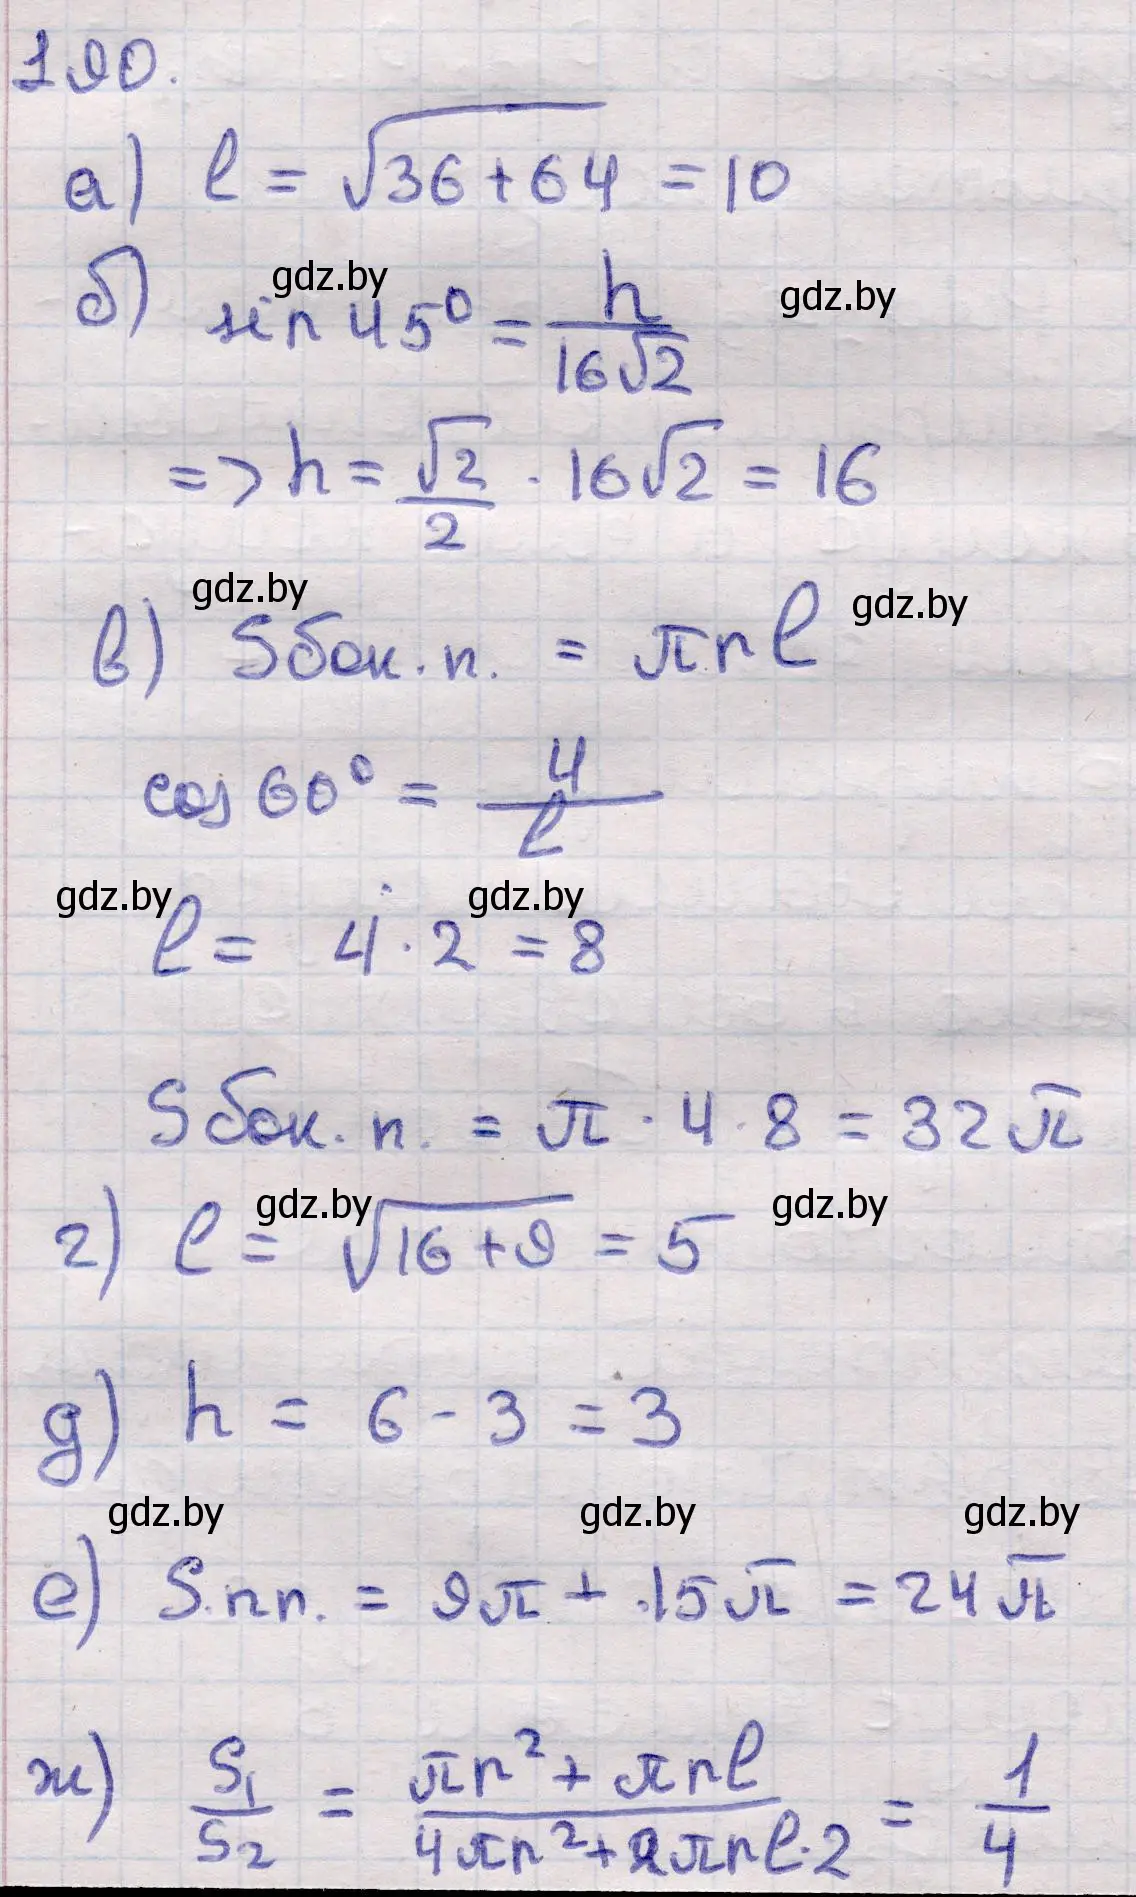 190.
а) l = √36+64 = 10
gdz.by
gdz.by
б) sin 45⁰ = h/16√2
=> h = √2/2 · 16√2 = 16
gdz.by
gdz.by
в) Sбок.п. = πrl
cos 60⁰ = 4/l
gdz.by
gdz.by
l = 4·2 = 8
Sбок.п. = π·4·8 = 32π
gdz.by
gdz.by
г) l = √16+9 = 5
д) h = 6-3 = 3
gdz.by
gdz.by
gdz.by
е) S.п.п. = 9π + 15π = 24π
ж) S₁/S₂ = πr²+πrl/4πr²+2πrl·2 = 1/4